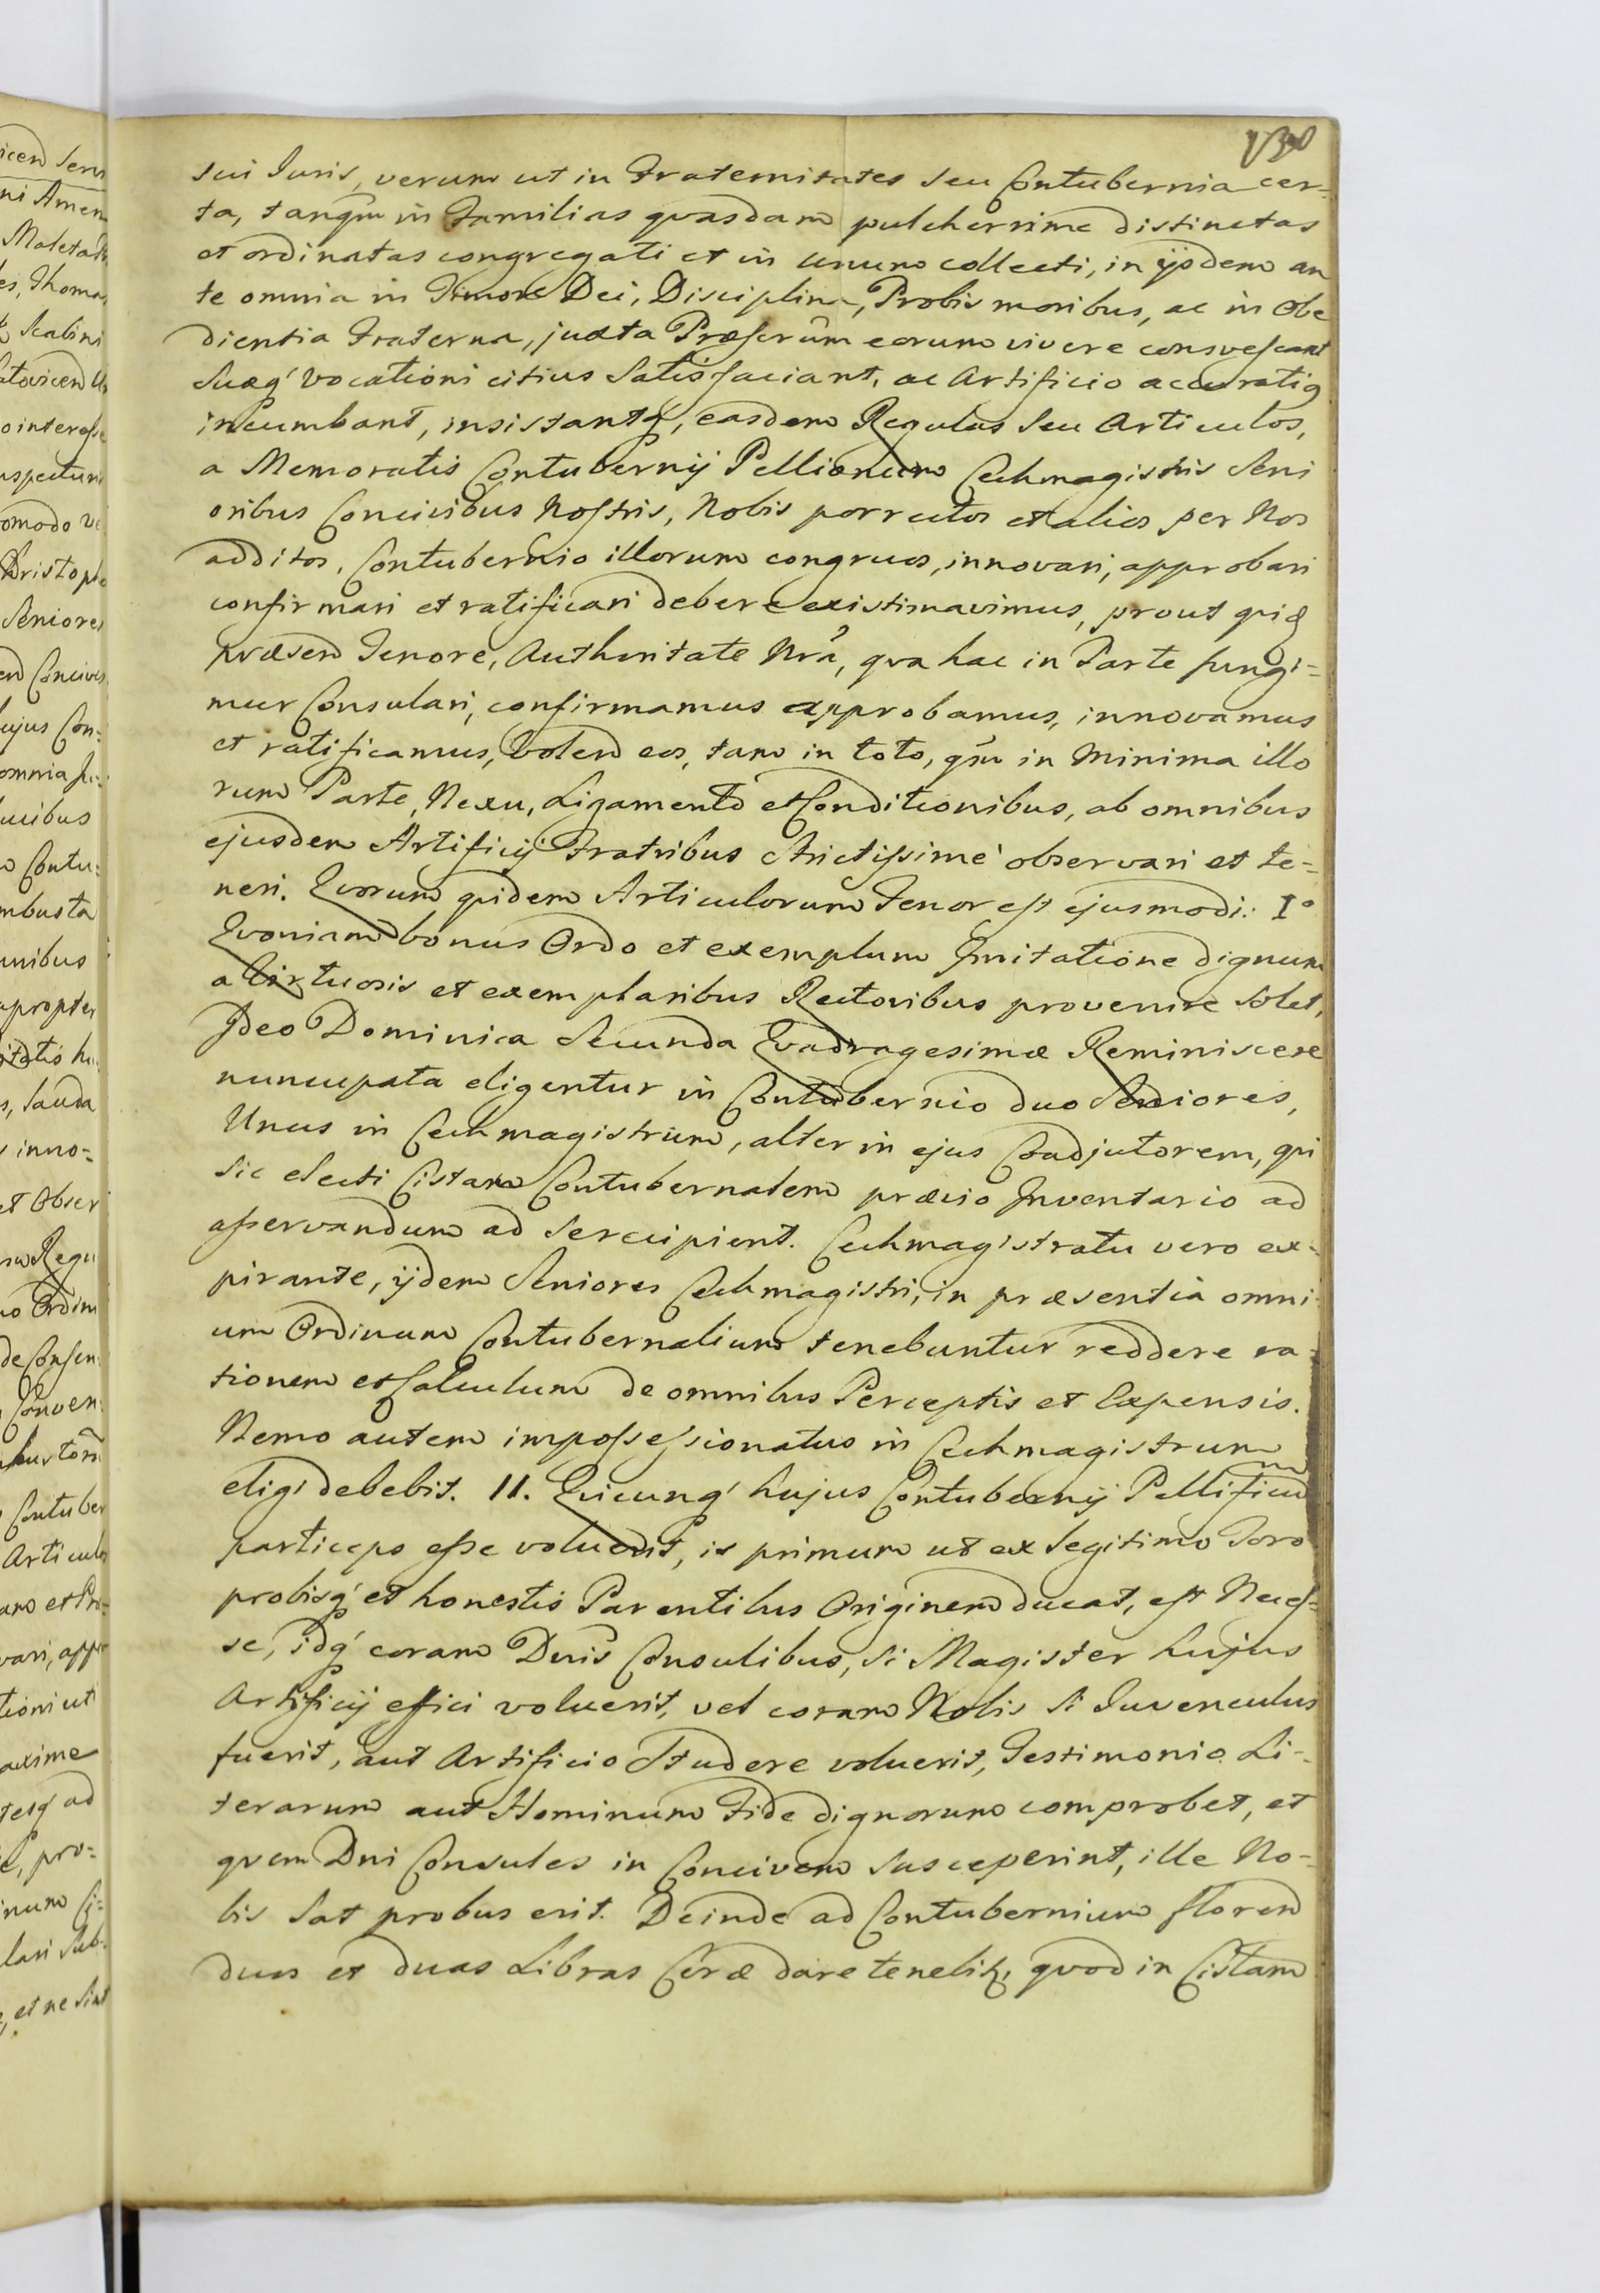 sui Juris, verum ut in Fraternitates seu Contubernia cer-
ta, tanqm in Familias quasdam pulcherrime distinctas
et ordinatas congregati et in unum collecti, in ijsdem an
te omnia in Timore Dei, Disciplina, Probis moribus, ac in Obe
dientia Fraterna, juxta Præscrum earum vivere consvescant
Suæq' Vocationi citius Satisfaciant, ac Artificio accuratiq
incumbant, insistantq, easdem Regulas Seu Articulos,
a Memoratis Contubernij Pellionum Cechmagistris Seni
oribus Concivibus Nostris, Nobis porrectos et alios per Nos
additos, Contubernio illorum congruos, innovari, approbari
confirmari et ratificari debere existimavimus, prout qidē
præsen Tenore, Authoritate Nrâ, qva hac in Parte fungi-
mur Consulari, confirmamus approbamus, innovamus
et ratificamus, Volen eos, tam in toto, qm in Minima illo
rum Parte, Nexu, Ligamento et Conditionibus, ab omnibus
ejusdem Artificij Fratribus strictissimè observari et te-
neri. Qvorum qvidem Articulorum Tenor est ejusmodi: Iº
Qvoniam bonus Ordo et exemplum Imitatione dignum
a Virtuosis et exemplaribus Rectoribus provenire Solet,
Ideo Dominica Secunda Qvadragesimæ Reminiscere
nuncupata eligentur in Contubernio duo Seniores,
Unus in Cechmagistrum, alter in ejus Coadjutorem, qui
sic electi Cistam Contubernalem prævio Inventario ad
asservandum ad Se recipient. Cechmagistratu vero ex-
pirante, ijdem Seniores Cechmagistri, in præsentia omni
um Ordinum Contubernalium tenebuntur reddere ra-
tionem et Calculum de omnibus Perceptis et Expensis.
Nemo autem impossessionatus in Cechmagistrum
eligi debebit. II. Qvicunq' hujus Contubernij Pellificum
particeps esse voluerit, is primum ut ex legitimo Toro
probisq' et honestis Parentibus Originem ducat, est Neces-
se, idq' coram Dnis Consulibus, si Magister hujus
Artificij effici voluerit, vel coram Nobis si Juvenculus
fuerit, aut Artificio Studere voluerit, Testimonio Li-
terarum aut Hominum Fide dignorum comprobet, et
qvem Dni Consules in Concivem susceperint, ille No-
bis Sat probus erit. Deinde ad Contubernium floren
duos et duas Libras Ceræ dare tenebitʒ, qvod in Cistam